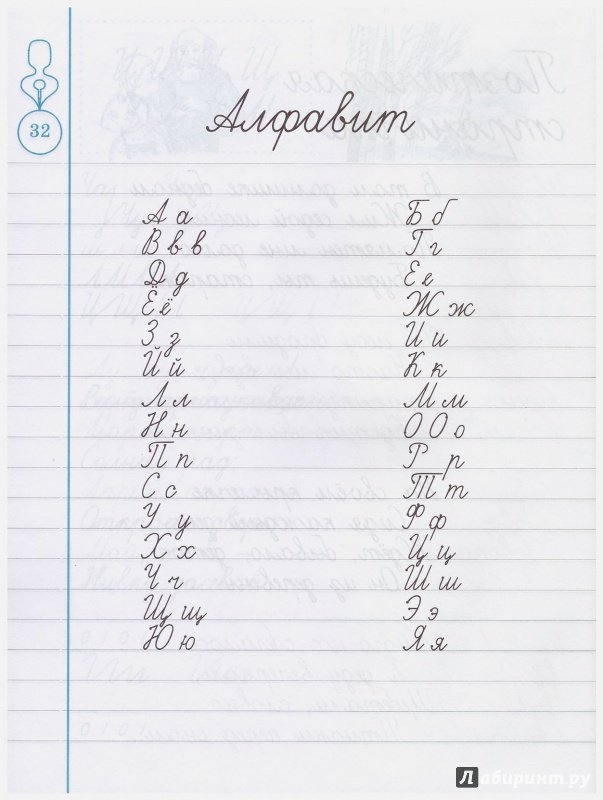 32
Алфавит
А а Б б
В в в Г г
Д д Е е
Ё ё Ж ж
З з И и
Й й К к
Л л М м
Н н О О о
П п Р р
С с Т т
У у Ф ф
Х х Ц ц
Ч ч Ш ш
Щ щ Э э
Ю ю Я я
Лабиринт.ру